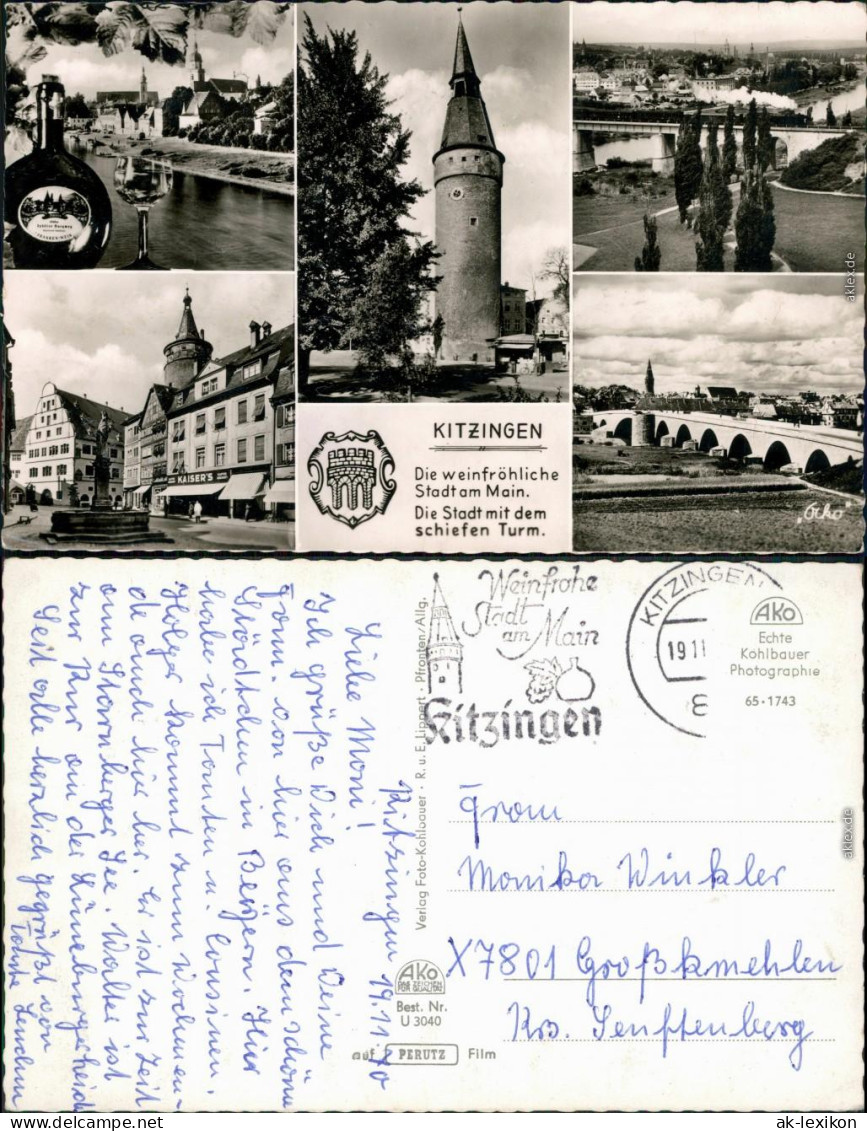 KAISER'S
KITZINGEN
Die weinfröhliche
Stadt am Main.
Die Stadt mit dem
schiefen Turm.
„Ako"
aklex.de
Weinfrohe
Stadt
am Main
Kitzingen
KITZINGEN
19.11
8
AKo
Echte
Kohlbauer
Photographie
65·1743
Verlag Foto-Kohlbauer · R. u. E. Lippert · Pfronten/Allg.
AKo
Best. Nr.
U 3040
auf PERUTZ Film
Kitzingen 19.11.70
Liebe Moni!
Ich grüße Dich und Deine
Fam. von hier aus dem schöne
Städtchen in Bayern. Hier
habe ich Tanten u. Cousinen,
Holger kommt zum Wochenen-
de auch hier her. Er ist zur Zeit
am Starnberger See. Walter ist
zur Kur an der Lüneburgerheide
Seit alle herzlich gegrüßt von
Tante Lenchen
Frau
Monika Winkler
X7801 Großkmehlen
Krs. Senftenberg
aklex.de
www.ak-lexikon.de
ak-lexikon